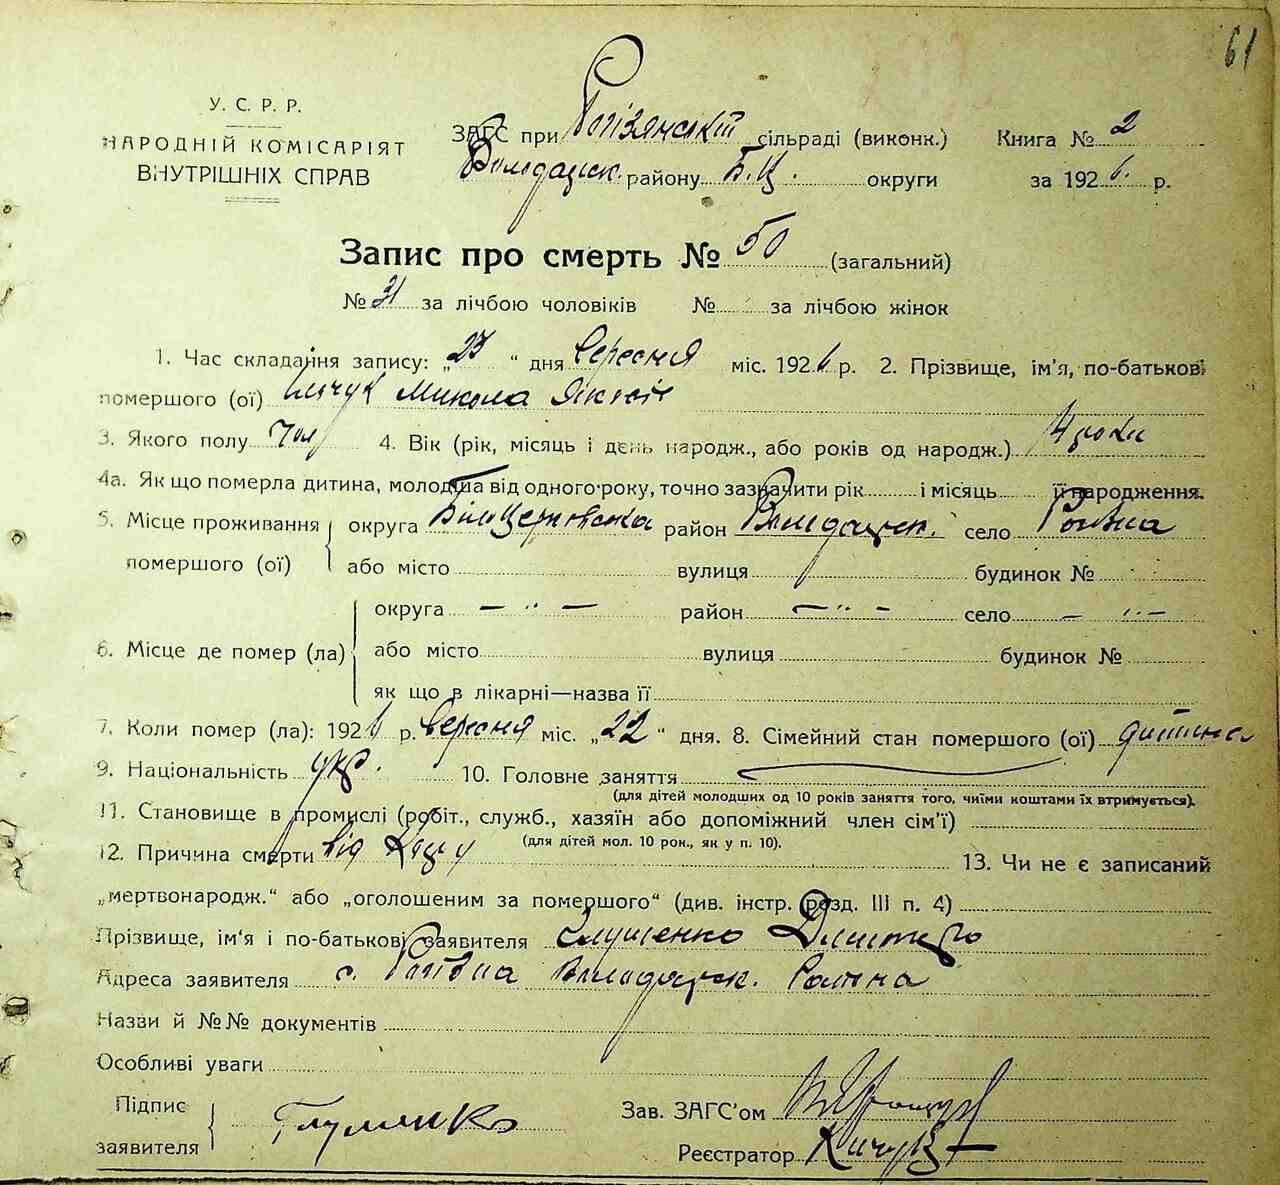 61
У. С. Р. Р.
НАРОДНІЙ КОМІСАРІЯТ
ВНУТРІШНІХ СПРАВ
ЗАГС при сільраді (виконк.) Книга № 2
району Б. Ц. округи за 1926 р.
Запис про смерть № 50 (загальний)
№ 31 за лічбою чоловіків № за лічбою жінок
1. Час складання запису: „23“ дня вересня міс. 1926 р. 2. Прізвище, ім'я, по-батькові
помершого (ої) Микола
3. Якого полу чол 4. Вік (рік, місяць і день народж., або років од народж.) 4 роки
4а. Як що померла дитина, молодша від одного року, точно зазначити рік і місяць її народження.
5. Місце проживання помершого (ої) округа Білоцерковська район село
або місто вулиця будинок №
6. Місце де помер (ла) округа — „ — район — „ — село — „ —
або місто вулиця будинок №
як що в лікарні—назва її
7. Коли помер (ла): 1926 р. вересня міс. „22“ дня. 8. Сімейний стан помершого (ої) дитина
9. Національність укр. 10. Головне заняття —
(для дітей молодших од 10 років заняття того, чиїми коштами їх втримується).
11. Становище в промислі (робіт., служб., хазяїн або допоміжний член сім'ї)
(для дітей мол. 10 рок., як у п. 10).
12. Причина смерти від 13. Чи не є записаний
„мертвонародж.“ або „оголошеним за помершого“ (див. інстр. розд. III п. 4)
Прізвище, ім'я і по-батькові заявителя
Адреса заявителя с.
Назви й №№ документів
Особливі уваги
Підпис заявителя
Зав. ЗАГС'ом
Реєстратор